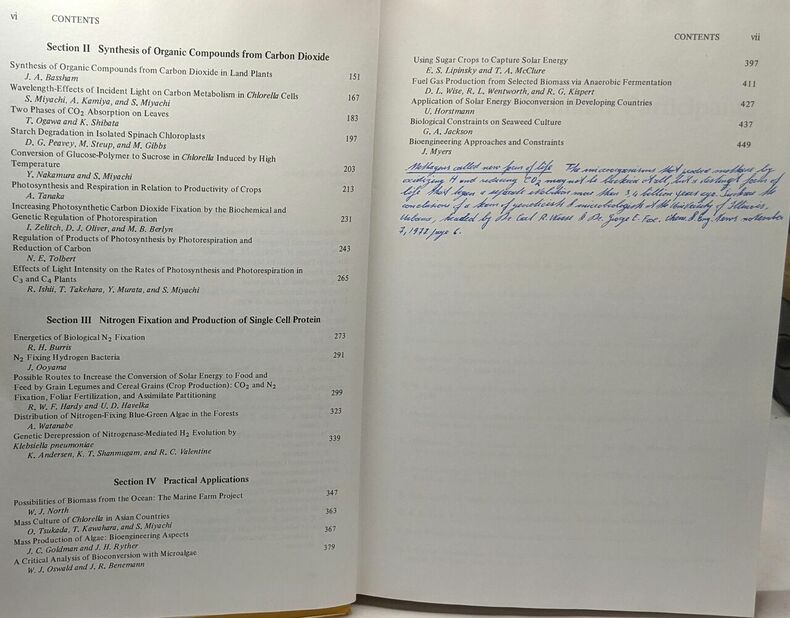 vi CONTENTS
Section II Synthesis of Organic Compounds from Carbon Dioxide
Synthesis of Organic Compounds from Carbon Dioxide in Land Plants 151
J. A. Bassham
Wavelength-Effects of Incident Light on Carbon Metabolism in Chlorella Cells 167
S. Miyachi, A. Kamiya, and S. Miyachi
Two Phases of CO2 Absorption on Leaves 183
T. Ogawa and K. Shibata
Starch Degradation in Isolated Spinach Chloroplasts 197
D. G. Peavey, M. Steup, and M. Gibbs
Conversion of Glucose-Polymer to Sucrose in Chlorella Induced by High
Temperature 203
Y. Nakamura and S. Miyachi
Photosynthesis and Respiration in Relation to Productivity of Crops 213
A. Tanaka
Increasing Photosynthetic Carbon Dioxide Fixation by the Biochemical and
Genetic Regulation of Photorespiration 231
I. Zelitch, D. J. Oliver, and M. B. Berlyn
Regulation of Products of Photosynthesis by Photorespiration and
Reduction of Carbon 243
N. E. Tolbert
Effects of Light Intensity on the Rates of Photosynthesis and Photorespiration in
C3 and C4 Plants 265
R. Ishii, T. Takehara, Y. Murata, and S. Miyachi
Section III Nitrogen Fixation and Production of Single Cell Protein
Energetics of Biological N2 Fixation 273
R. H. Burris
N2 Fixing Hydrogen Bacteria 291
J. Ooyama
Possible Routes to Increase the Conversion of Solar Energy to Food and
Feed by Grain Legumes and Cereal Grains (Crop Production): CO2 and N2
Fixation, Foliar Fertilization, and Assimilate Partitioning 299
R. W. F. Hardy and U. D. Havelka
Distribution of Nitrogen-Fixing Blue-Green Algae in the Forests 323
A. Watanabe
Genetic Derepression of Nitrogenase-Mediated H2 Evolution by
Klebsiella pneumoniae 339
K. Andersen, K. T. Shanmugam, and R. C. Valentine
Section IV Practical Applications
Possibilities of Biomass from the Ocean: The Marine Farm Project 347
W. J. North
Mass Culture of Chlorella in Asian Countries 363
O. Tsukada, T. Kawahara, and S. Miyachi
Mass Production of Algae: Bioengineering Aspects 367
J. C. Goldman and J. H. Ryther
A Critical Analysis of Bioconversion with Microalgae 379
W. J. Oswald and J. R. Benemann
CONTENTS vii
Using Sugar Crops to Capture Solar Energy 397
E. S. Lipinsky and T. A. McClure
Fuel Gas Production from Selected Biomass via Anaerobic Fermentation 411
D. L. Wise, R. L. Wentworth, and R. G. Kispert
Application of Solar Energy Bioconversion in Developing Countries 427
U. Horstmann
Biological Constraints on Seaweed Culture 437
G. A. Jackson
Bioengineering Approaches and Constraints 449
J. Myers
called new form of life The microorganisms that produce methane by
oxidizing H and reducing CO2 may not be bacteria at all, but a distinct form of
life that began a separate evolution more than 3,4 billion years ago. the
conclusions of a team of geneticists & microbiologists at the University of Illinois,
Urbana, headed by Dr Carl R. Woese & Dr. George E. Fox. Chem. & Eng. News november
7, page 6.